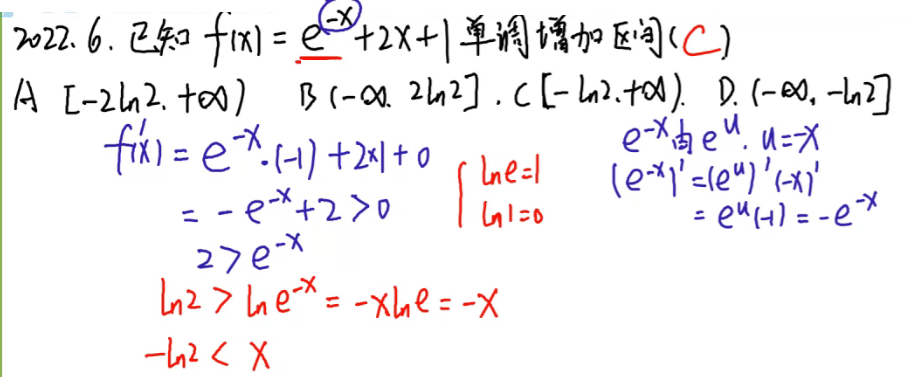 2022.6. 已知 f(x) = e^{-x} + 2x + 1 单调增加区间 (C)
A [-2ln2, +∞) B (-∞, 2ln2]. C [-ln2, +∞). D. (-∞, -ln2]
f'(x) = e^{-x}·(-1) + 2×1 + 0
= -e^{-x} + 2 > 0
2 > e^{-x}
ln2 > ln e^{-x} = -x ln e = -x
-ln2 < x
{ ln e = 1
ln 1 = 0
e^{-x} 由 e^u. u = -x
(e^{-x})' = (e^u)'(-x)'
= e^u(-1) = -e^{-x}